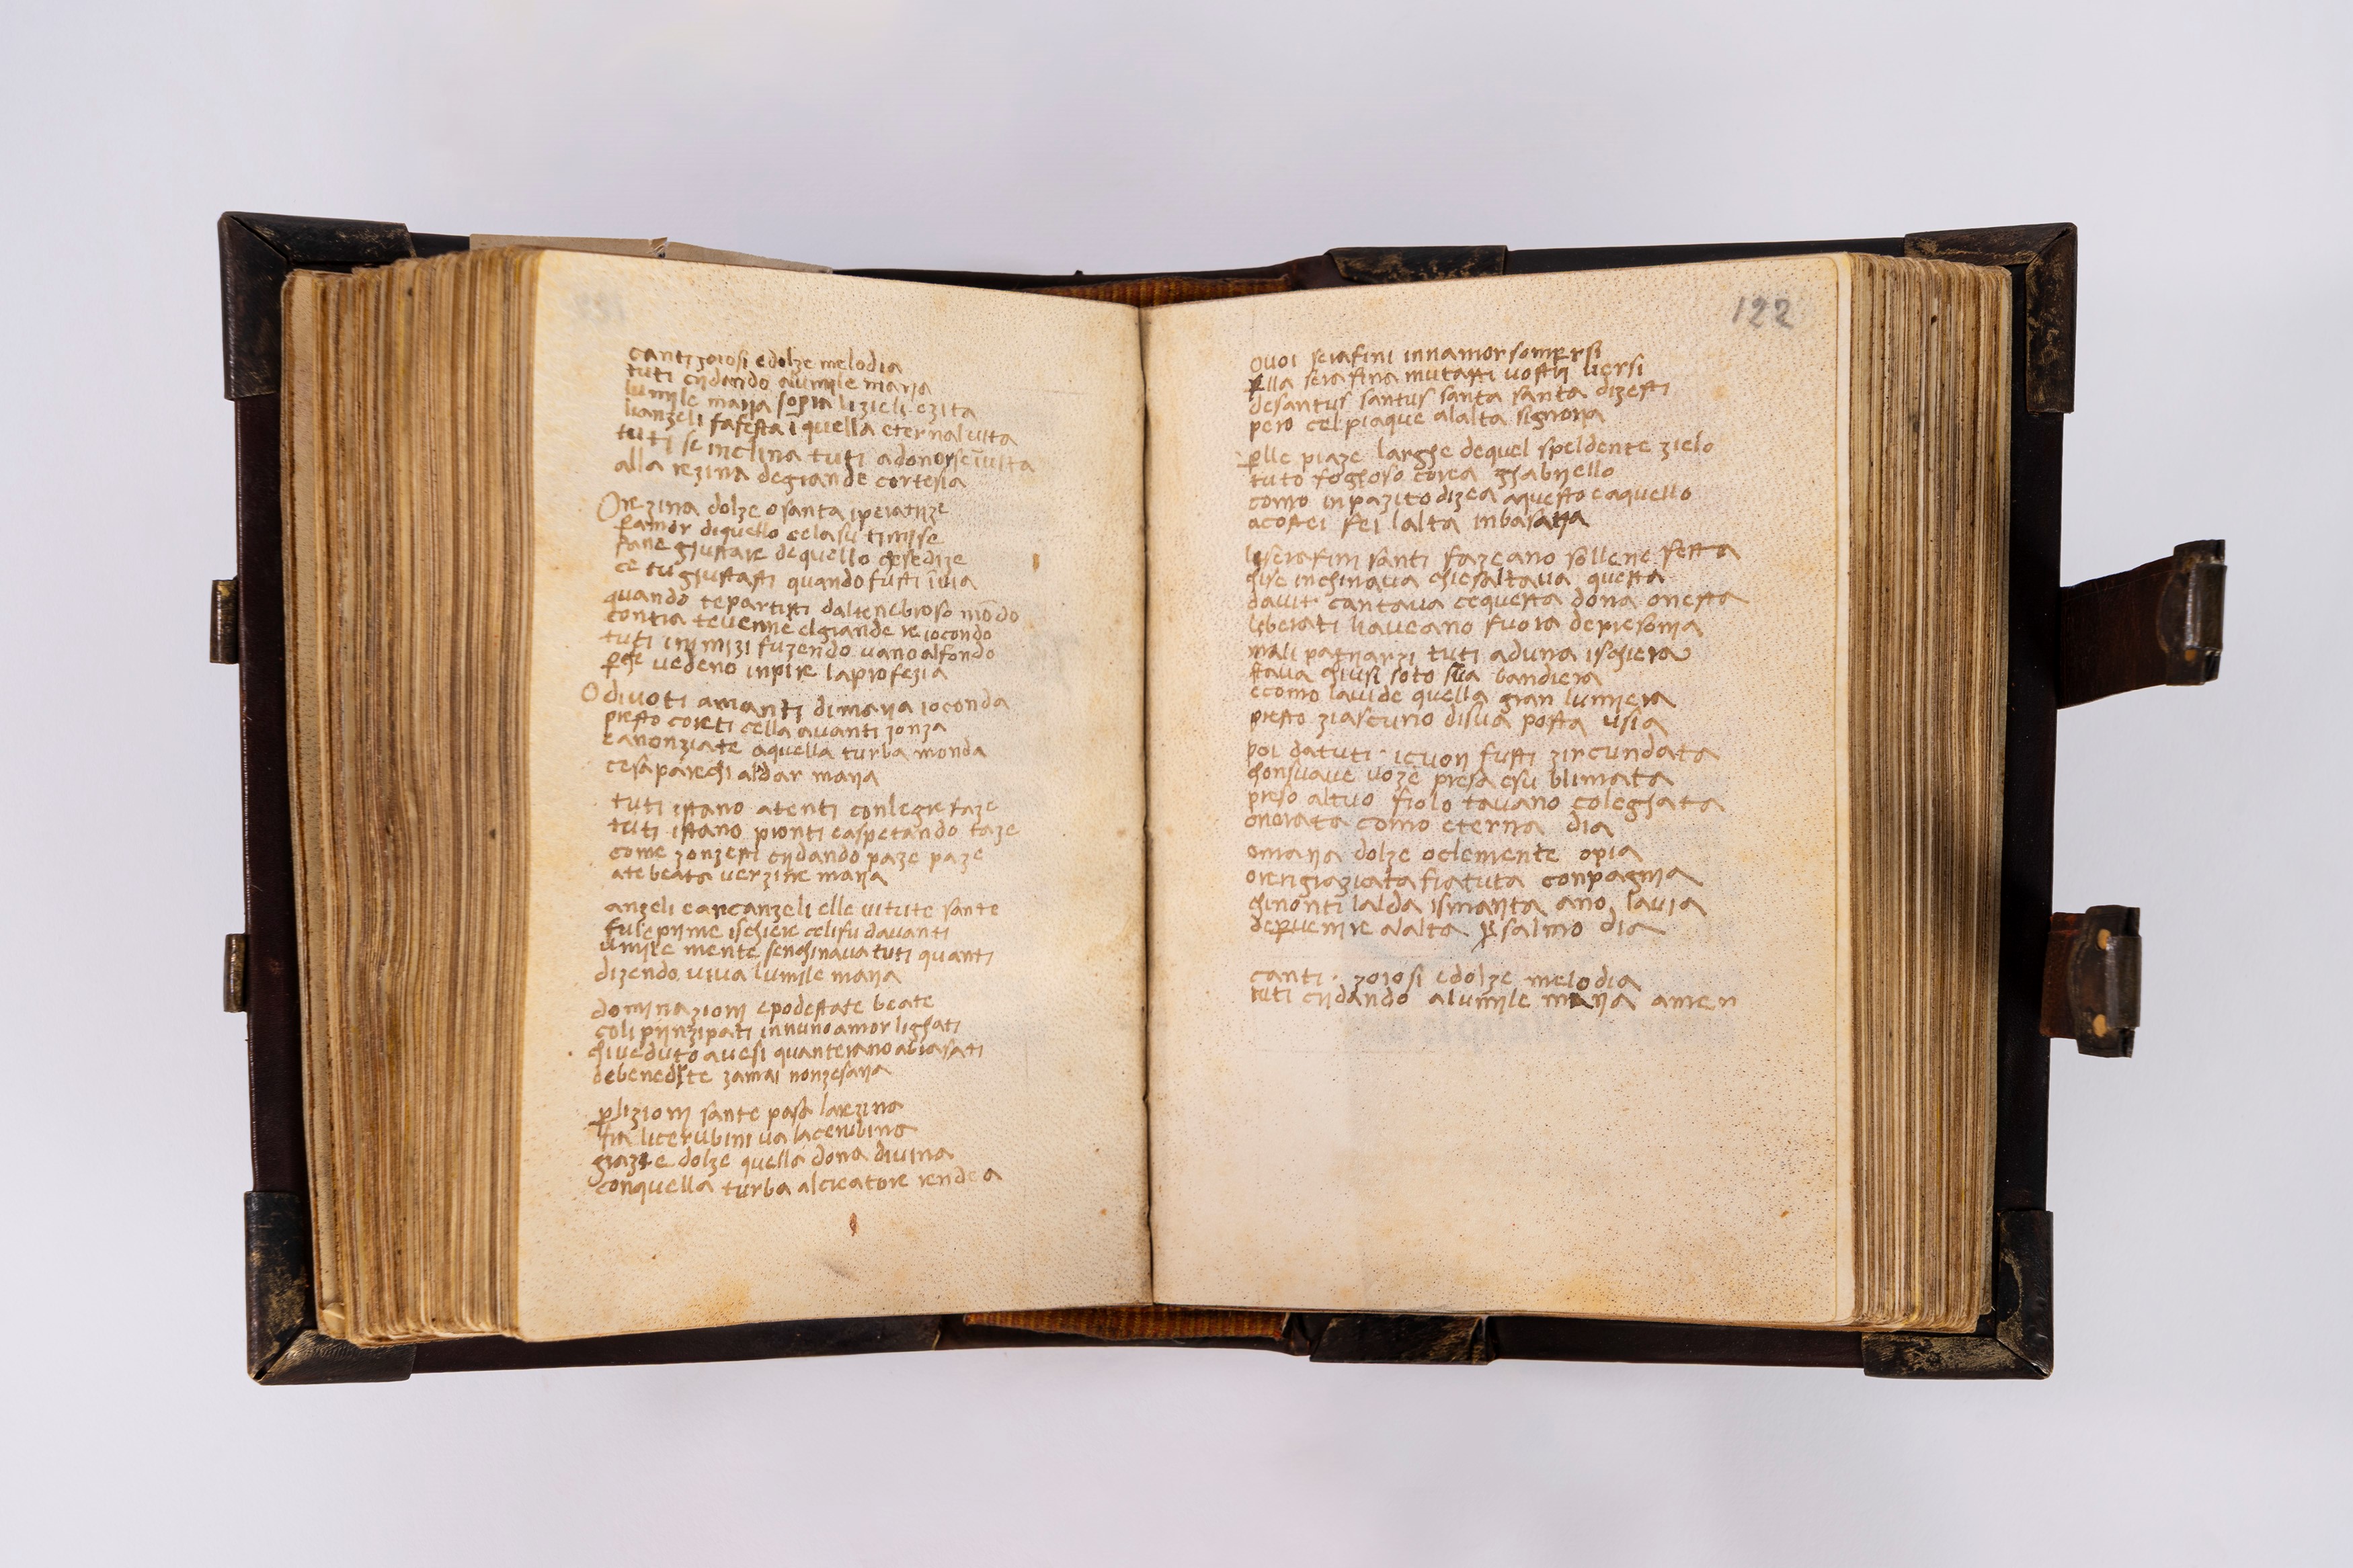 canti zoiosi e dolze melodia
tuti cridando alumile maria
lumile maria sopra li zieli ezita
lianzeli fa festa i quella eternal vita
tuti se inclina tuti adonorse
alla rezina de grande cortesia
O rezina dolze o santa iperatrize
p amor di quello
fane gustare de quello che se dize
ce tu gustasti quando fusti i via
quando te partisti dal tenebroso modo
contra te venne el grande re iocondo
tuti inimizi fuzendo vano al fondo
pche vedeno inpire la profezia
O divoti amanti di maria ioconda
presto coreti cella avanti zonza
e anonziate aquella turba monda
ce saparechi aldar maria
tuti istano atenti con legre faze
tuti istano pronti e aspetando taze
come zonzesti cridando paze paze
ate beata verzine maria
anzeli e arcanzeli elle vitute sante
fu le prime ischiere celi fu davanti
umile mente senchinava tuti quanti
dizendo viva lumile maria
dominazioni e podestate beate
coli prinzipati in nuno amor lighati
chi veduto avesi quanterano abrasati
de benedite zamai non zesaria
p li zioni sante pasa la rezina
fra li cerubini va la cerubina
grazie dolze quella dona divina
con quella turba al creatore rendea
122
O voi serafini in namor sompersi
p lla serafina mutasti vostri versi
de santus santus santa santa dizesti
pero cel piaque alalta signoria
p lle piaze larghe de quel speldente zielo
tuto foghoso corea ghabriello
como inpazito dizea aquesto e aquello
acostei fei lalta inbasaria
li serafini santi fazeano sollene festa
chi se inchinava chi esaltava questa
davit cantava ce questa dona onesta
liberati li aveano fuora de presonia
tuti aduna ischiera
stava chiusi soto sua bandiera
e como la vide quella gran lumiera
presto ziascuno di sua posta usia
poi da tuti icuori fusti zircundata
chon suave voze presa e su blimata
preso al tuo fiolo tavano coleghata
onorata como eterna dia
o maria dolze o clemente o pia
o rengraziata fia tuta conpagnia
ano la via
de pvenire alalta psalmo dia
canti zoiosi e dolze melodia
tuti cridando alumile maria amen